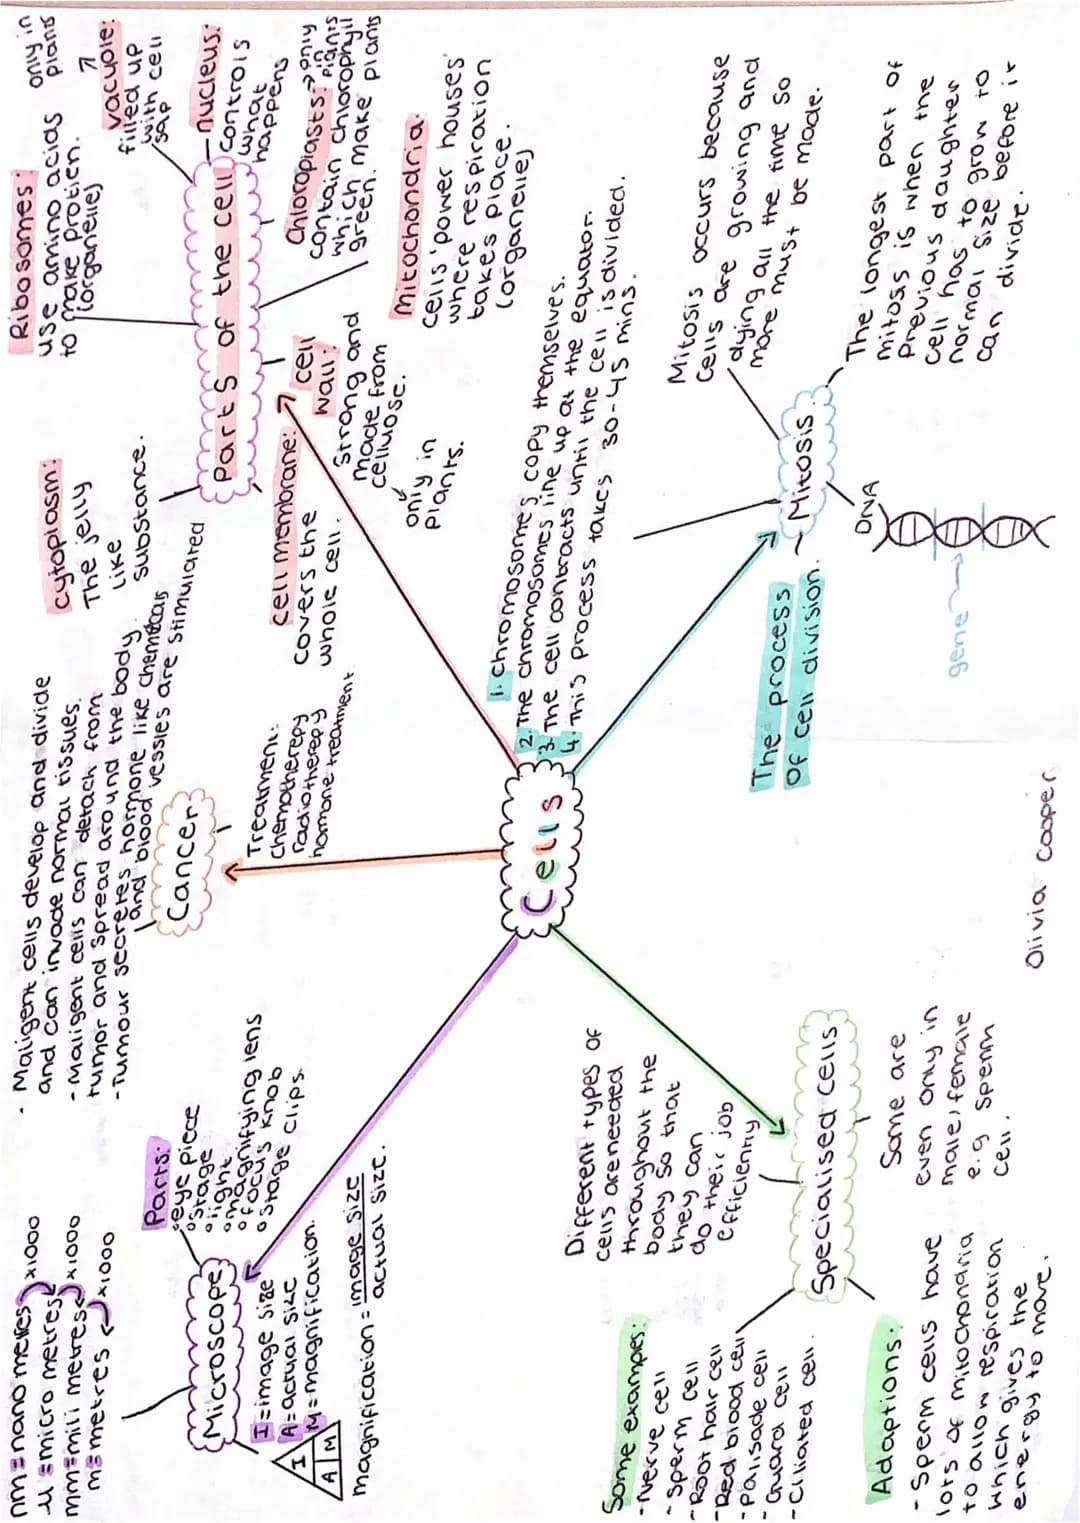 nm = nano metres
x1000
µ = micro metres
x1000
mm = mili metres
x1000
m = metres
Microscope
Parts:
eye piece
stage
light
magnifying lens
focus knob
stage clips.
I = image size
A = actual size
M = magnification.
I
A M
magnification = image size
actual size.
- Maligent cells develop and divide
and can invade normal tissues.
- Maligent cells can detach from
tumor and spread around the body.
- Tumour secretes hormone like chemicals
and blood vessles are stimulated
Cancer
Treatment:
Chemotherepy
Radiotherepy
homone treatment
Cytoplasm:
The jelly
like
substance.
Ribosomes:
use amino acids
to make protien.
(organelle)
only in
plants
vacuole:
filled up
with cell
sap
Parts of the cell
nucleus:
controls
what
happens
Chloroplasts: → only
in
plants
contain chlorophyll
which make plants
green.
Mitochondria:
cells 'power houses'
where respiration
takes place.
(organelle)
cell
wall:
strong and
made from
cellulose.
only in
plants.
cell membrane:
covers the
whole cell.
Cells
1. Chromosomes copy themselves.
2. The chromosomes line up at the equator.
3. The cell contracts until the cell is divided.
4. This process takes 30-45 mins.
Mitosis
The process
of cell division.
Mitosis occurs because
cells are growing and
dying all the time so
more must be made.
The longest part of
mitosis is when the
previous daughter
cell has to grow to
normal size before it
can divide.
DNA
gene
Different types of
cells are needed
throughout the
body so that
they can
do their job
efficiently
Specialised cells
Some examples:
- Nerve cell
- Sperm cell
- Root hair cell
- Red blood cell
- Palisade cell
- Guard cell
- Ciliated cell.
Adaptions:
- Sperm cells have
lots of mitochonaria
to allow respiration
which gives the
energy to move.
Some are
even only in
male/female
e.g sperm
cell.
Olivia Cooper